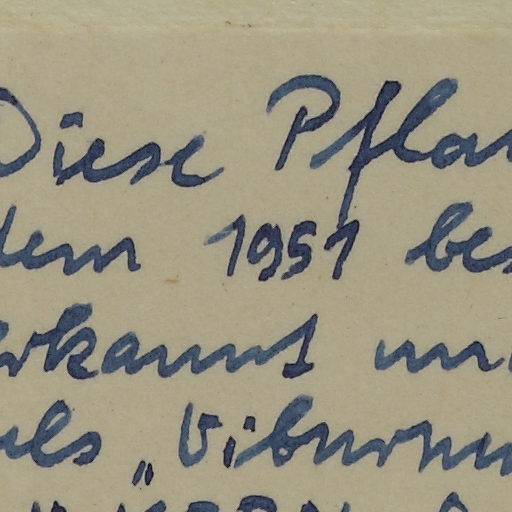 Diese Pflan
dem 1951 bes
erkannt un
als „Viburnu